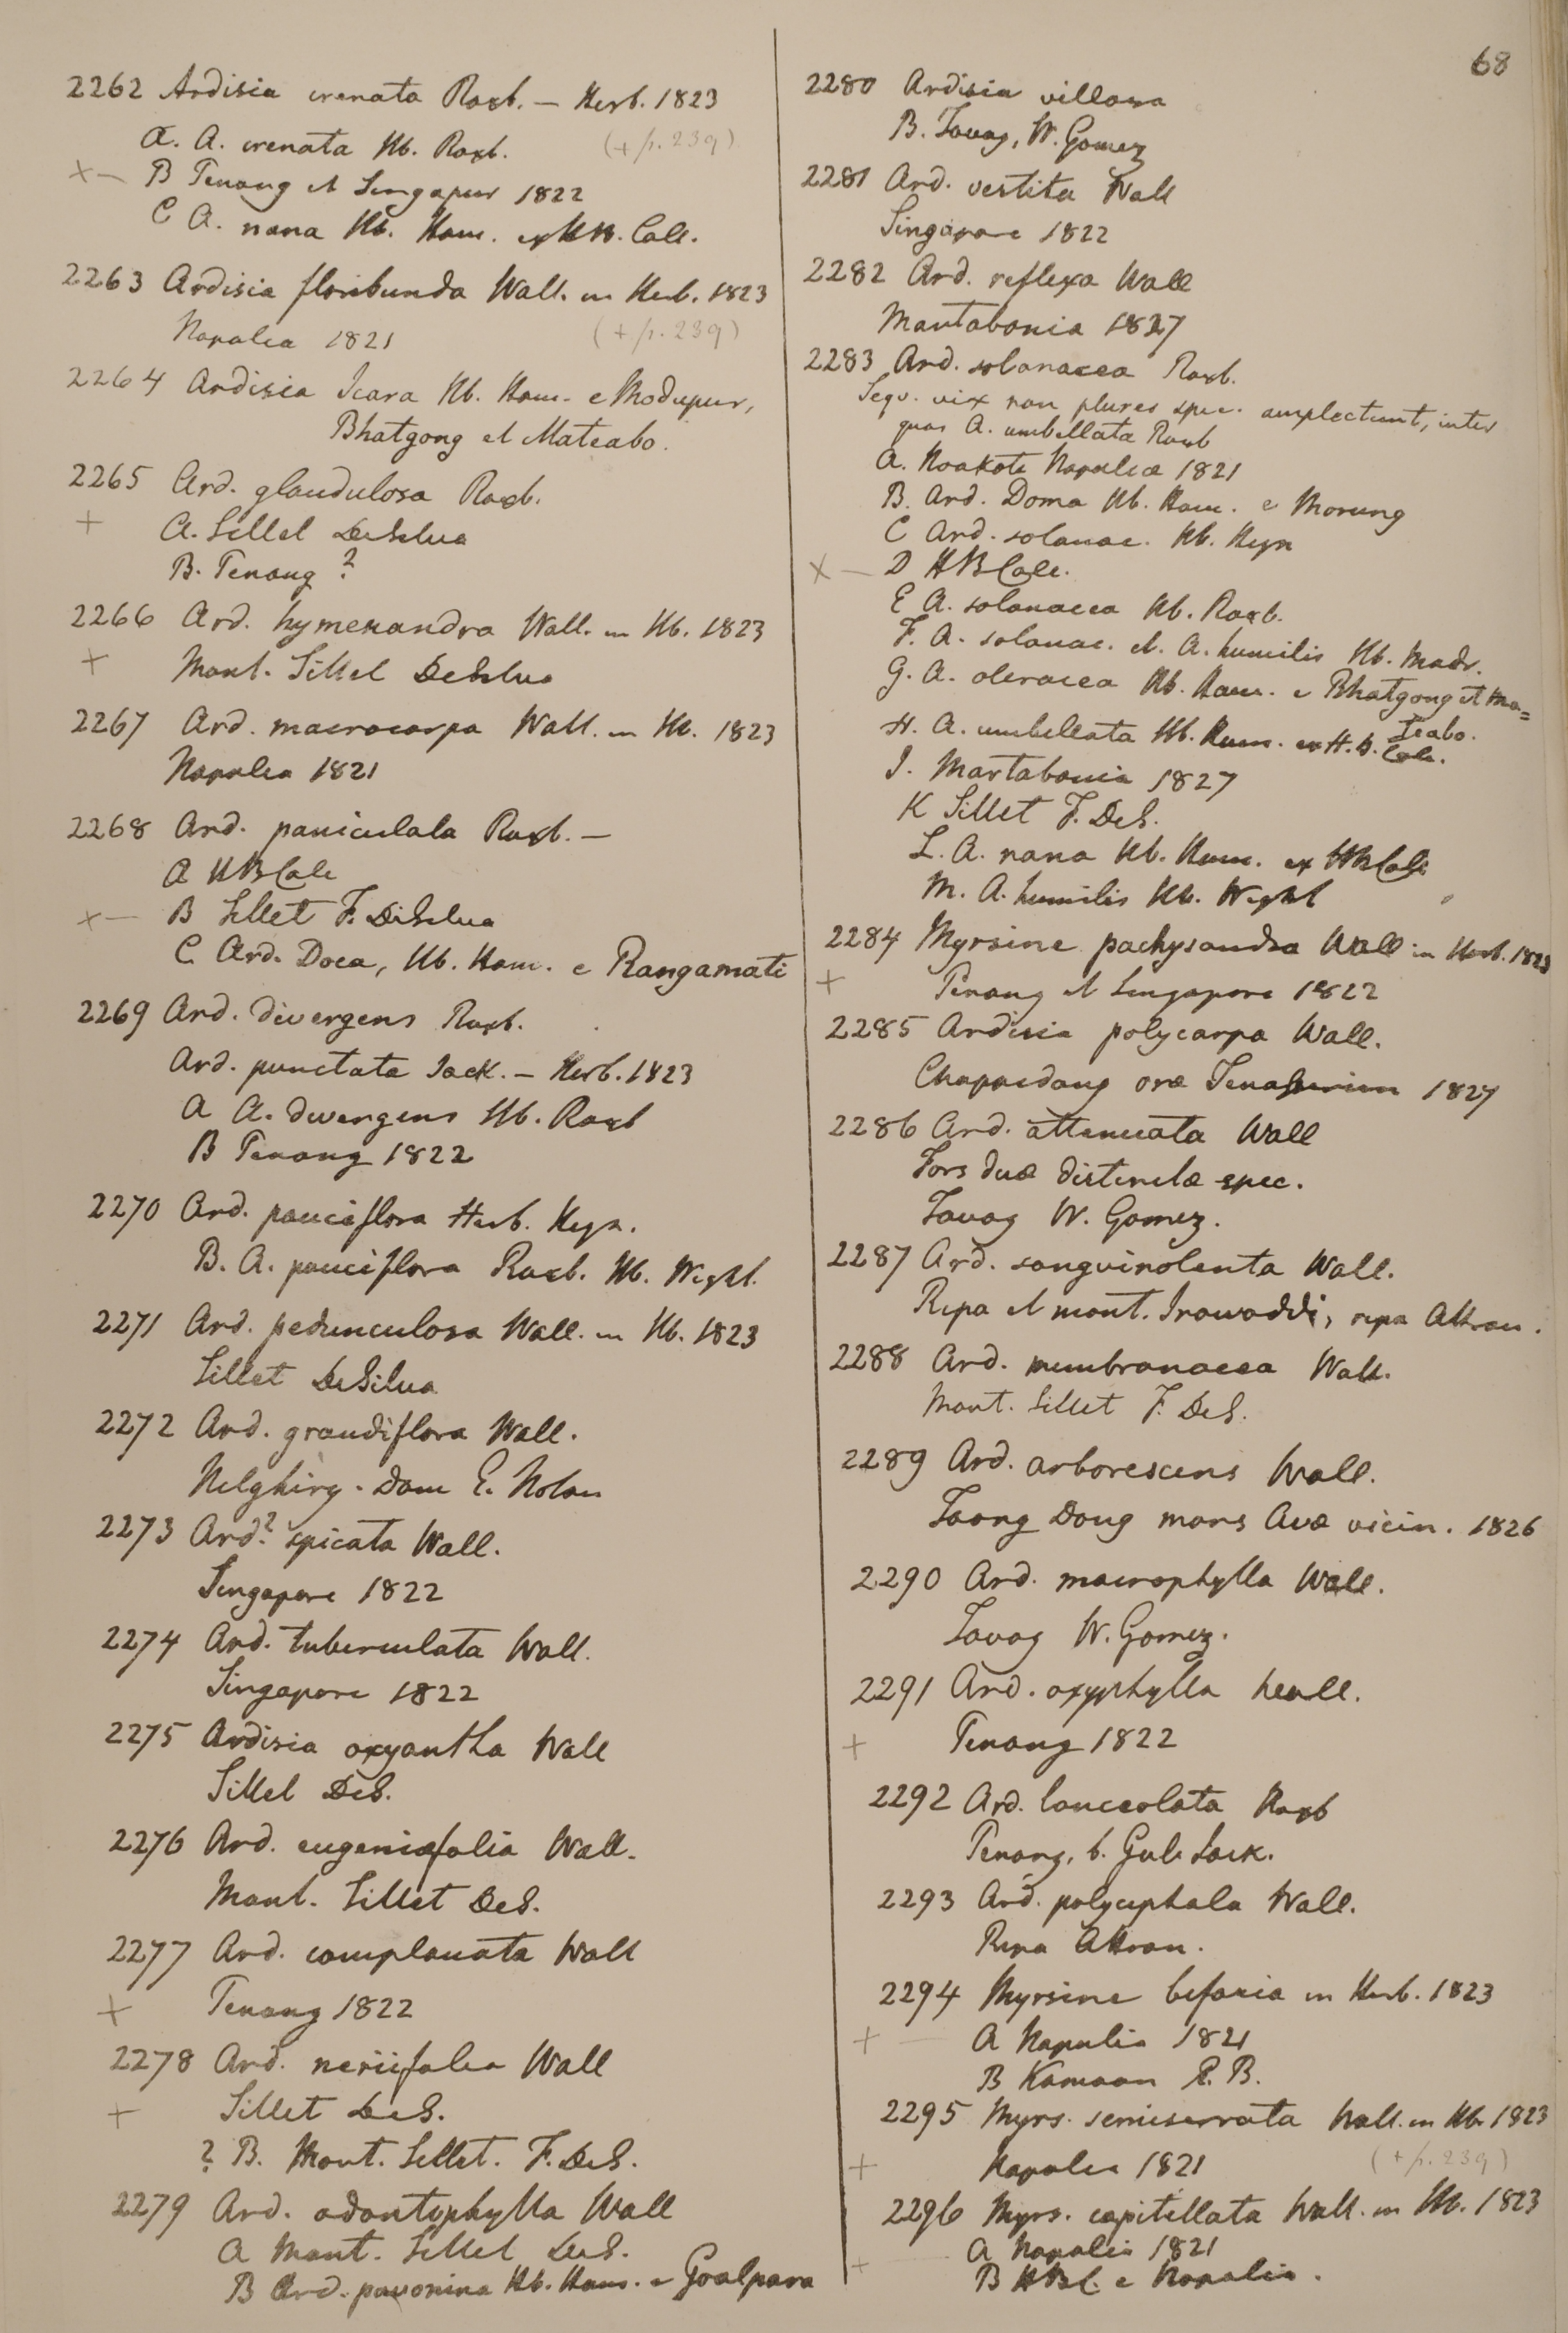 68
2262 Ardisia crenata Roxb. — Herb. 1823
A. A. crenata Hb. Roxb. (+ p. 239)
×— B Penang et Singapur 1822
C A. nana Hb. Ham. ex H.B. Calc.
2263 Ardisia floribunda Wall. in Herb. 1823
Napalia 1821 (+ p. 239)
2264 Ardisia Icara Hb. Ham. e Modupur,
Bhatgong et Mateabo.
2265 Ard. glandulosa Roxb.
+ A. Sillet DeSilva
B. Penang ?
2266 Ard. hymenandra Wall. in Hb. 1823
+ Mont. Sillet DeSilva
2267 Ard. macrocarpa Wall. in Hb. 1823
Napalia 1821
2268 Ard. paniculata Roxb. —
A HBCalc
×— B Sillet F. DeSilva
C Ard. Doca, Hb. Ham. e Rangamati
2269 Ard. divergens Roxb.
Ard. punctata Jack. — Herb. 1823
A A. divergens Hb. Roxb
B Penang 1822
2270 Ard. pauciflora Herb. Heyn.
B. A. pauciflora Roxb. Hb. Wight.
2271 Ard. pedunculosa Wall. in Hb. 1823
Sillet DeSilva
2272 Ard. grandiflora Wall.
Nelghirry. Dom E. Nolan
2273 Ard.? spicata Wall.
Singapore 1822
2274 Ard. tuberculata Wall.
Singapore 1822
2275 Ardisia oxyantha Wall
Sillet DeS.
2276 Ard. eugeniæfolia Wall.
Mont. Sillet DeS.
2277 Ard. complanata Wall
+ Penang 1822
2278 Ard. neriifolia Wall
+ Sillet DeS.
? B. Mont. Sillet. F. DeS.
2279 Ard. odontophylla Wall
A Mont. Sillet DeS.
B Ard. pavonina Hb. Ham. e Goalpara
2280 Ardisia villosa
B. Tavoy, W. Gomez
2281 Ard. vestita Wall
Singapore 1822
2282 Ard. reflexa Wall
Martabania 1827
2283 Ard. solanacea Roxb.
Sequ. vix non plures spec. amplectunt, inter
quas A. umbellata Roxb
A. Noakote Napaliæ 1821
B. Ard. Doma Hb. Ham. e Morung
C Ard. solanac. Hb. Heyn
×— D HBCalc.
E A. solanacea Hb. Roxb.
F. A. solanac. et. A. humilis Hb. Madr.
G. A. oleracea Hb. Ham. e Bhatgong et Ma=
teabo.
H. A. umbellata Hb. Ham. ex H.B. Calc.
I. Martabania 1827
K Sillet F. DeS.
L. A. nana Hb. Ham. ex HBCalc
M. A. humilis Hb. Wight
2284 Myrsine pachysandra Wall in Herb. 1823
+ Penang et Singapore 1822
2285 Ardisia polycarpa Wall.
Chapaedong oræ Tenasserim 1827
2286 Ard. attenuata Wall
Fors duæ distinctæ spec.
Tavoy W. Gomez.
2287 Ard. sanguinolenta Wall.
Ripa et mont. Irawaddi, ripa Attran.
2288 Ard. membranacea Wall.
Mont. Sillet F. DeS.
2289 Ard. arborescens Wall.
Taong Dong mons Avæ vicin. 1826
2290 Ard. macrophylla Wall.
Tavoy W. Gomez.
2291 Ard. oxyphylla Wall.
+ Penang 1822
2292 Ard. lanceolata Roxb
Penang, b. Gul. Jack.
2293 Ard. polycephala Wall.
Ripa Attran.
2294 Myrsine bifaria in Herb. 1823
+ — A Napalia 1821
B Kamaon R. B.
2295 Myrs. semiserrata Wall. in Hb. 1823
+ Napalia 1821 (+ p. 239)
2296 Myrs. capitellata Wall. in Hb. 1823
+ A Napalia 1821
B HBC. e Napalia.